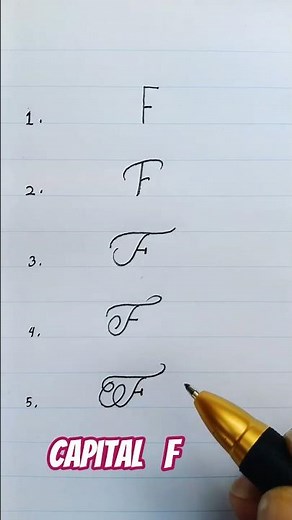 1. F
2. F
3. F
4. F
5. F
CAPITAL F